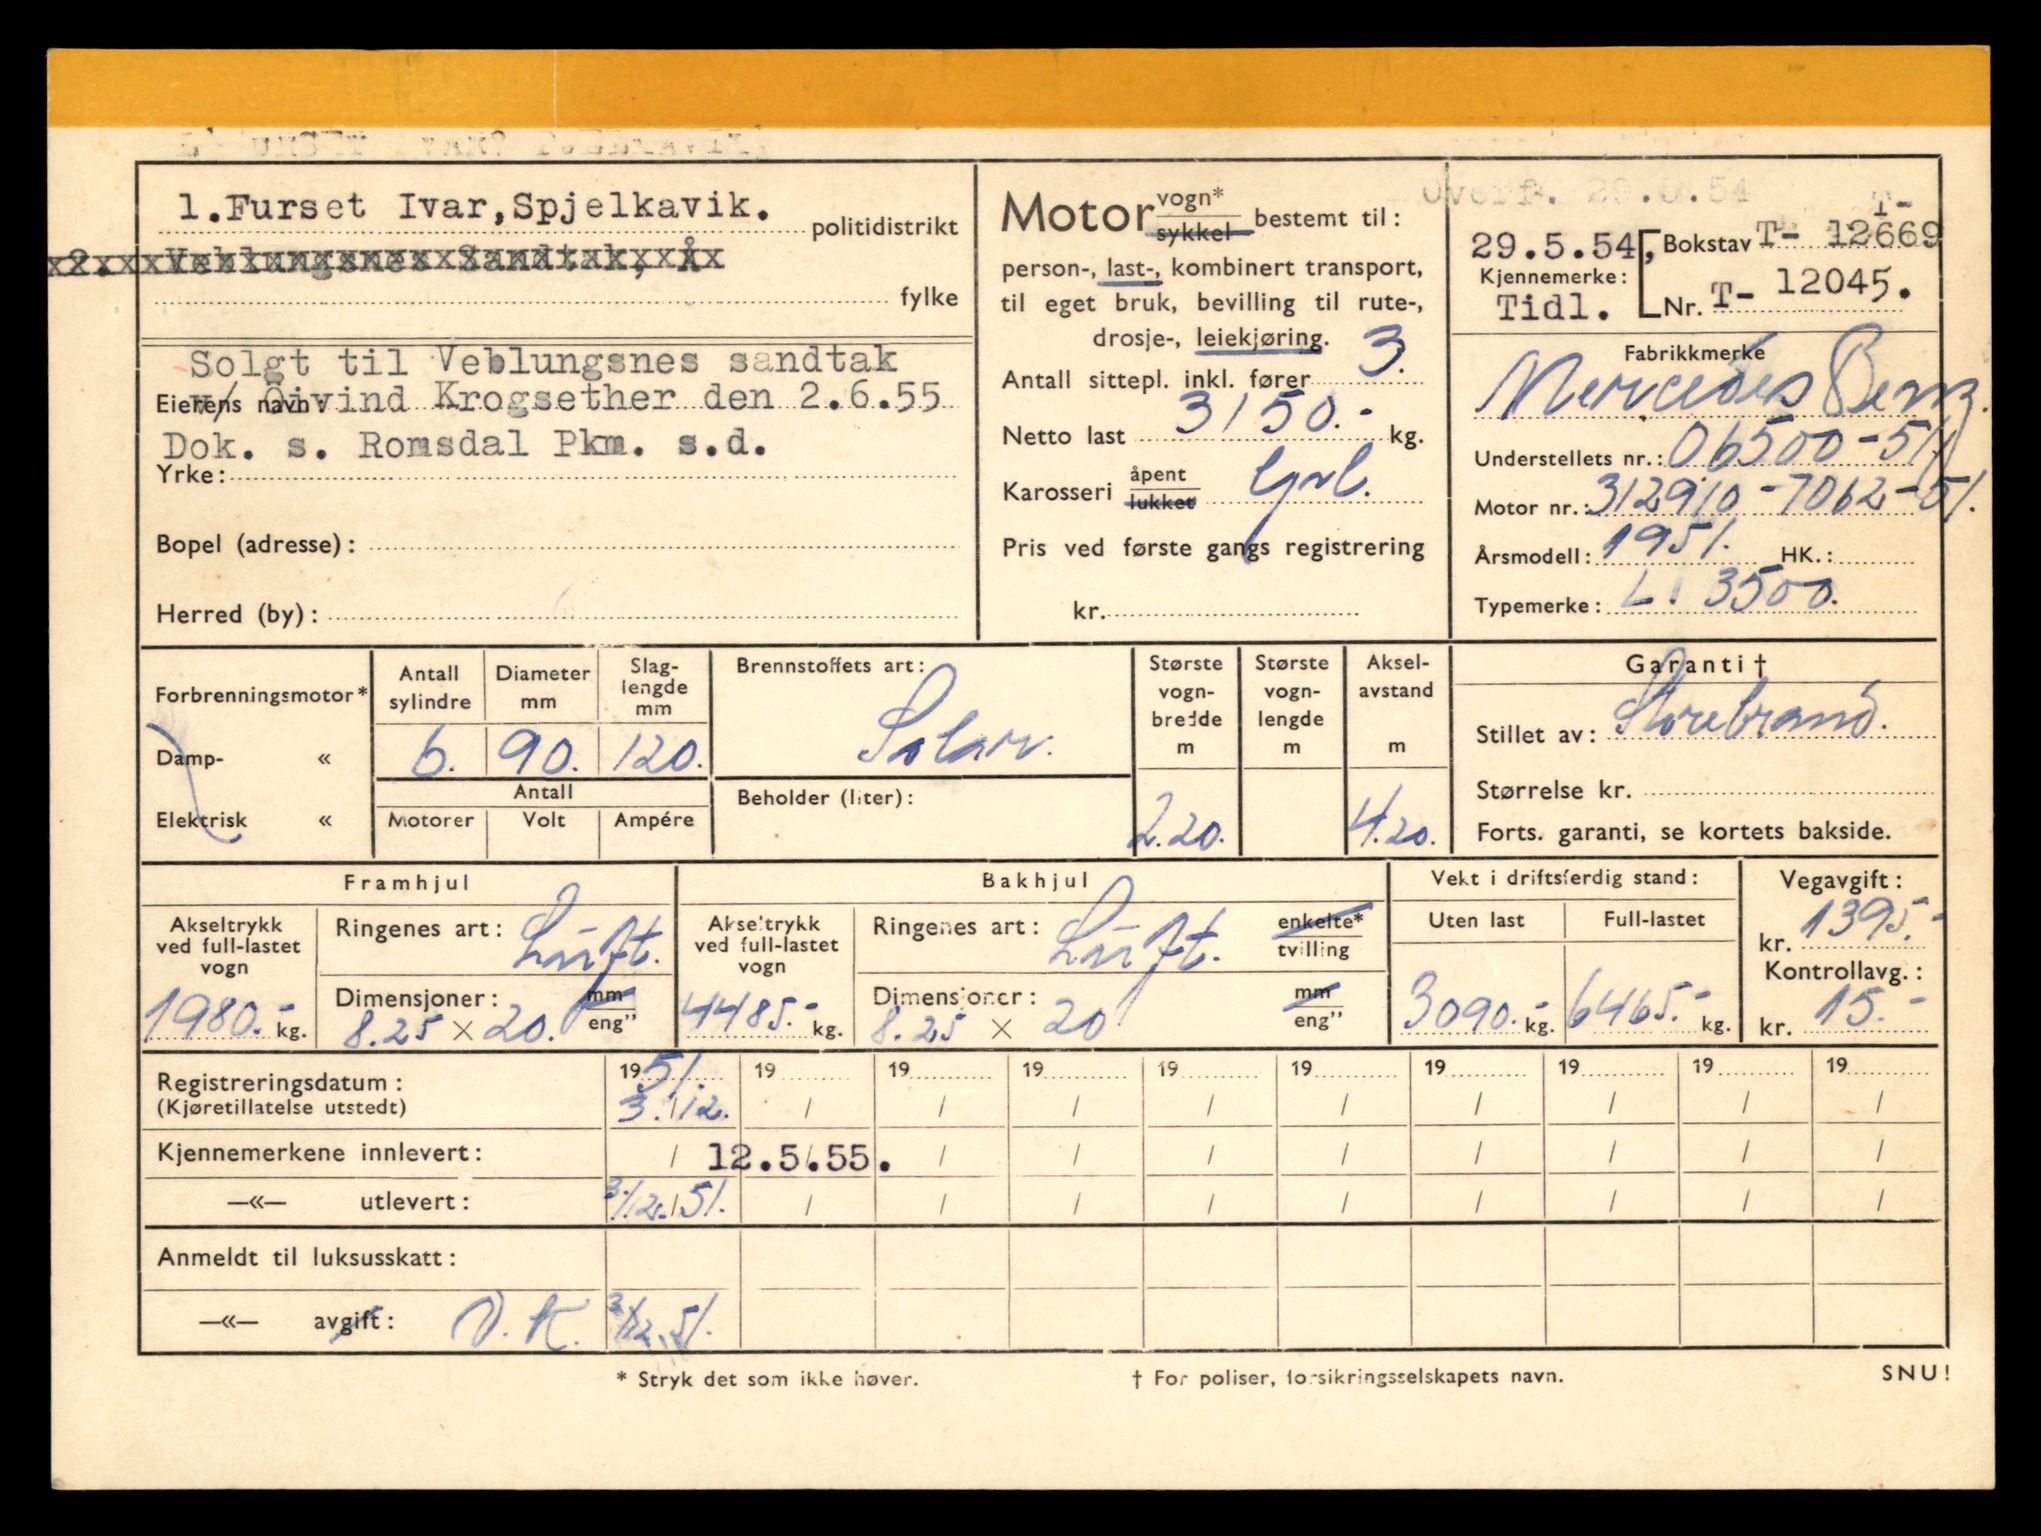 1.Furset Ivar,Spjelkavik.
politidistrikt
2. Veblungsnes Sandtak, Å
fylke
Solgt til Veblungsnes sandtak
Eierens navn: v/ Öivind Krogsether den 2.6.55
Dok. s. Romsdal Pkm. s.d.
Yrke:
Bopel (adresse):
Herred (by):
Motor vogn* sykkel bestemt til:
person-, last-, kombinert transport,
til eget bruk, bevilling til rute-,
drosje-, leiekjøring.
Antall sittepl. inkl. fører 3.
Netto last 3150.- kg.
Karosseri åpent lukket
Pris ved første gangs registrering
kr.
Overf. 29.5.54
T-
29.5.54, Bokstav T- 12669
Kjennemerke:
Tidl. Nr. T- 12045.
Fabrikkmerke
Mercedes Benz.
Understellets nr.: 06500-51
Motor nr.: 312910-7062-51.
Årsmodell: 1951. HK.:
Typemerke: L. 3500.
Forbrenningsmotor*
Damp- «
Elektrisk «
Antall sylindre
6.
Diameter mm
90.
Slag-lengde mm
120.
Antall
Motorer Volt Ampére
Brennstoffets art:
Solar.
Beholder (liter):
Største vogn-bredde m
2.20.
Største vogn-lengde m
Aksel-avstand m
4.20.
Garanti †
Stillet av: Storebrand.
Størrelse kr.
Forts. garanti, se kortets bakside.
Framhjul
Akseltrykk ved full-lastet vogn
1980.- kg.
Ringenes art: Luft.
Dimensjoner: mm eng"
8.25 × 20.
Bakhjul
Akseltrykk ved full-lastet vogn
4485.- kg.
Ringenes art: Luft. enkelte* tvilling
Dimensjoner: mm eng"
8.25 × 20
Vekt i driftsferdig stand:
Uten last Full-lastet
3090.- kg. 6465.- kg.
Vegavgift:
kr. 1395.-
Kontrollavg.:
kr. 15.-
Registreringsdatum: 1951. 19 19 19 19 19 19 19 19 19
(Kjøretillatelse utstedt) 3./12. / / / / / / / / /
Kjennemerkene innlevert: / 12.5.55. / / / / / / / /
—«— utlevert: 3/12.51. / / / / / / / / /
Anmeldt til luksusskatt:
—«— avgift: O.K. 3/12.51.
* Stryk det som ikke høver.
† For poliser, forsikringsselskapets navn.
SNU!